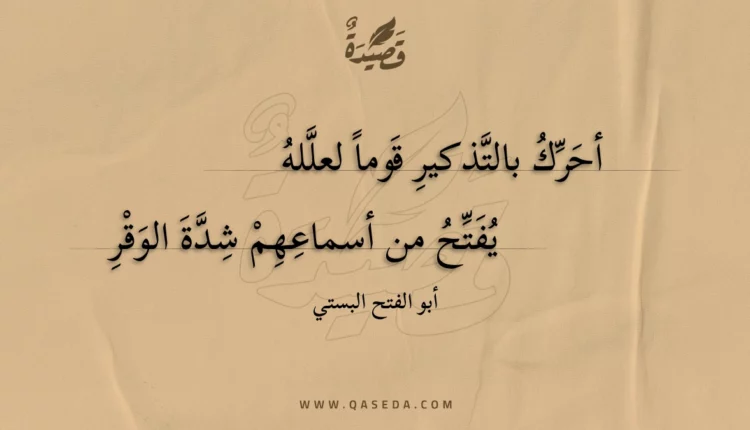 قَصِيْدَةٌ
أحَرِّكُ بالتَّذكيرِ قَوماً لعلَّلهُ
يُفَتِّحُ من أسماعِهِمْ شِدَّةَ الوَقْرِ
أبو الفتح البستي
WWW.QASEDA.COM